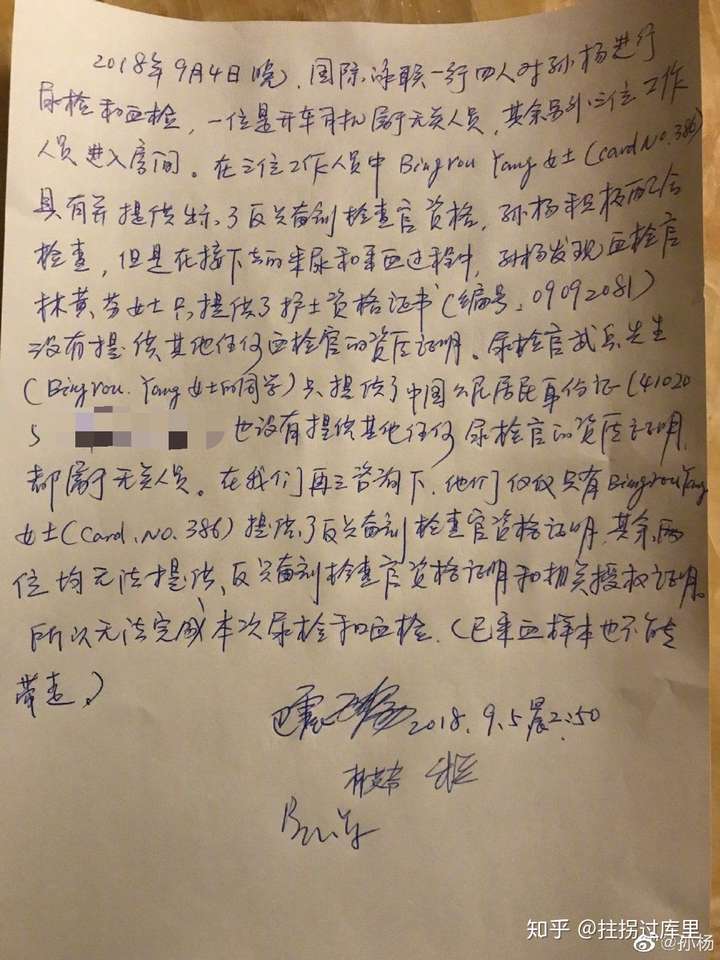 2018年9月4日晚,国际泳联一行四人对孙杨进行
尿检和血检,一位是开车司机属于无关人员,其余另外三位工作
人员进入房间。在三位工作人员中 Bingrou Yang女士(card No.386)
具有并提供出示了反兴奋剂检查官资格,孙杨积极配合
检查,但是在接下去的采尿和采血过程中,孙杨发现血检官
林黄芬女士只提供了护士资格证书(编号:09092081)
没有提供其他任何血检官的资历证明。尿检官武兵先生
(Bingrou Yang女士的同学)只提供了中国公民居民身份证(41020
5 也没有提供其他任何尿检官的资历证明,
都属于无关人员。在我们再三咨询下,他们仅仅只有Bingrou Yang
女士(Card.No.386)提供了反兴奋剂检查官资格证明,其余两
位均无法提供反兴奋剂检查官资格证明和相关授权证明。
所以无法完成本次尿检和血检.(已采血样本也不能
带走。)
巴震 2018.9.5晨2:50
知乎 @拄拐过库里
@孙杨